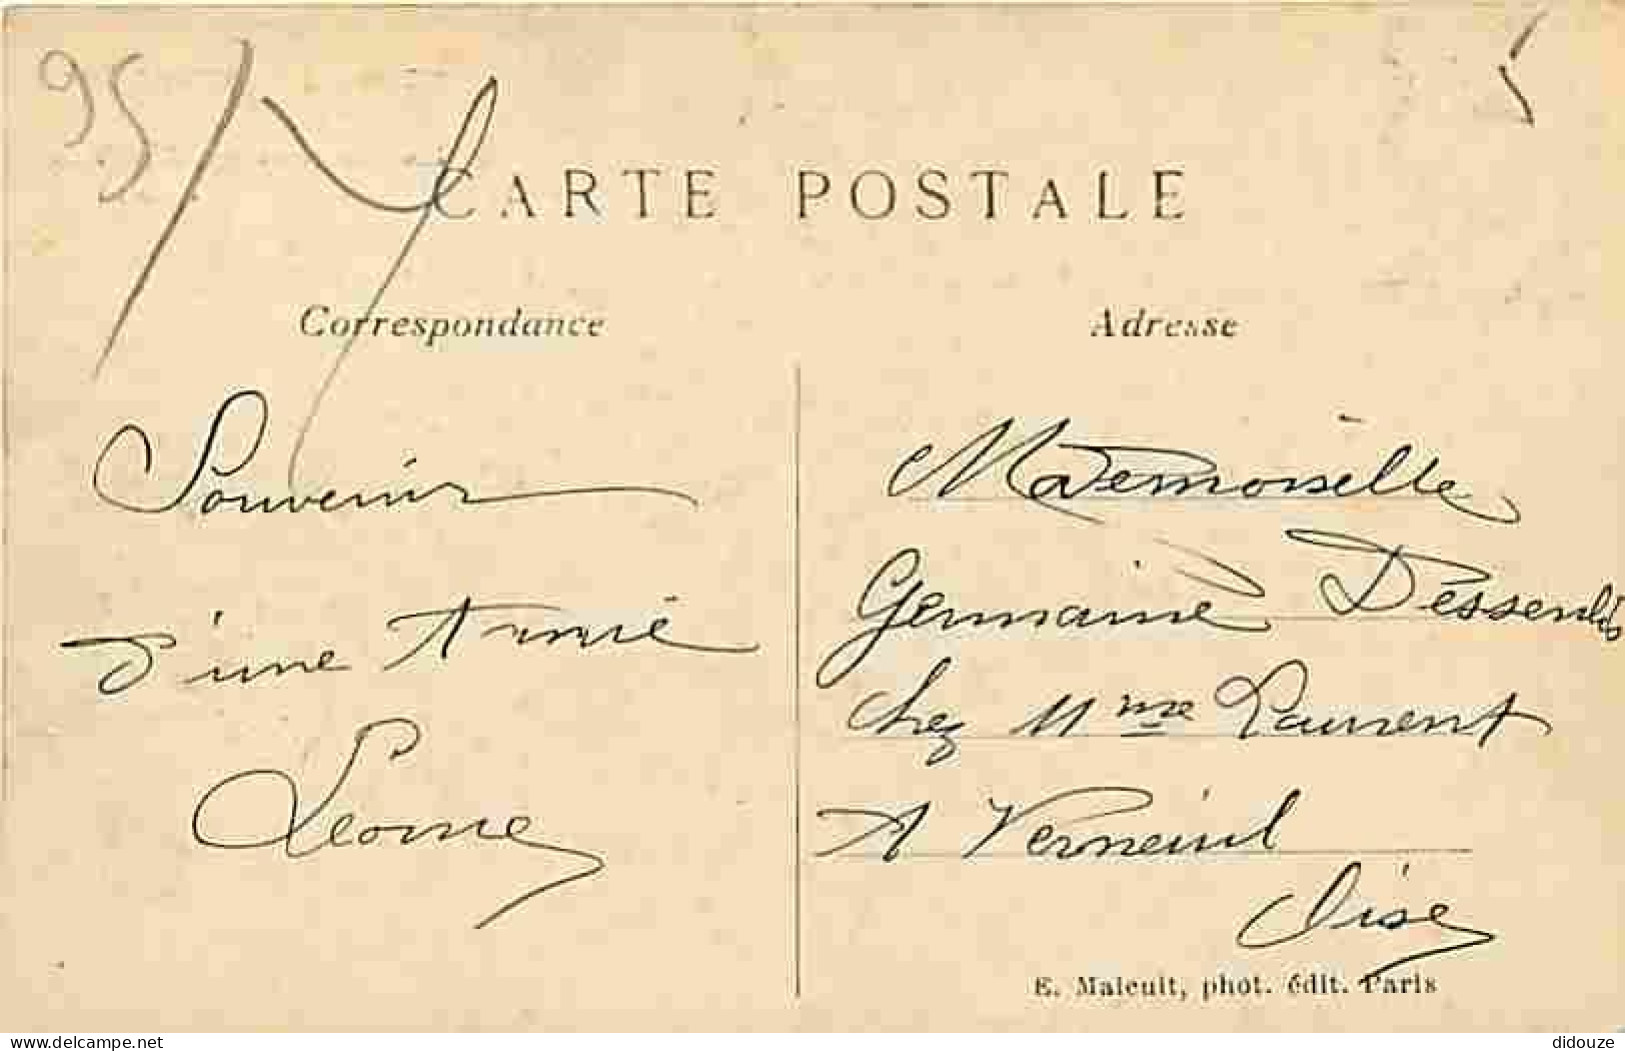 95
CARTE POSTALE
Correspondance
Adresse
Souvenir
d'une Amie
Léonie
Mademoiselle
Germaine
chez Mme Laurent
A Verneuil
Oise
E. Maleuit, phot. édit. Paris
delcampe.net
didouze